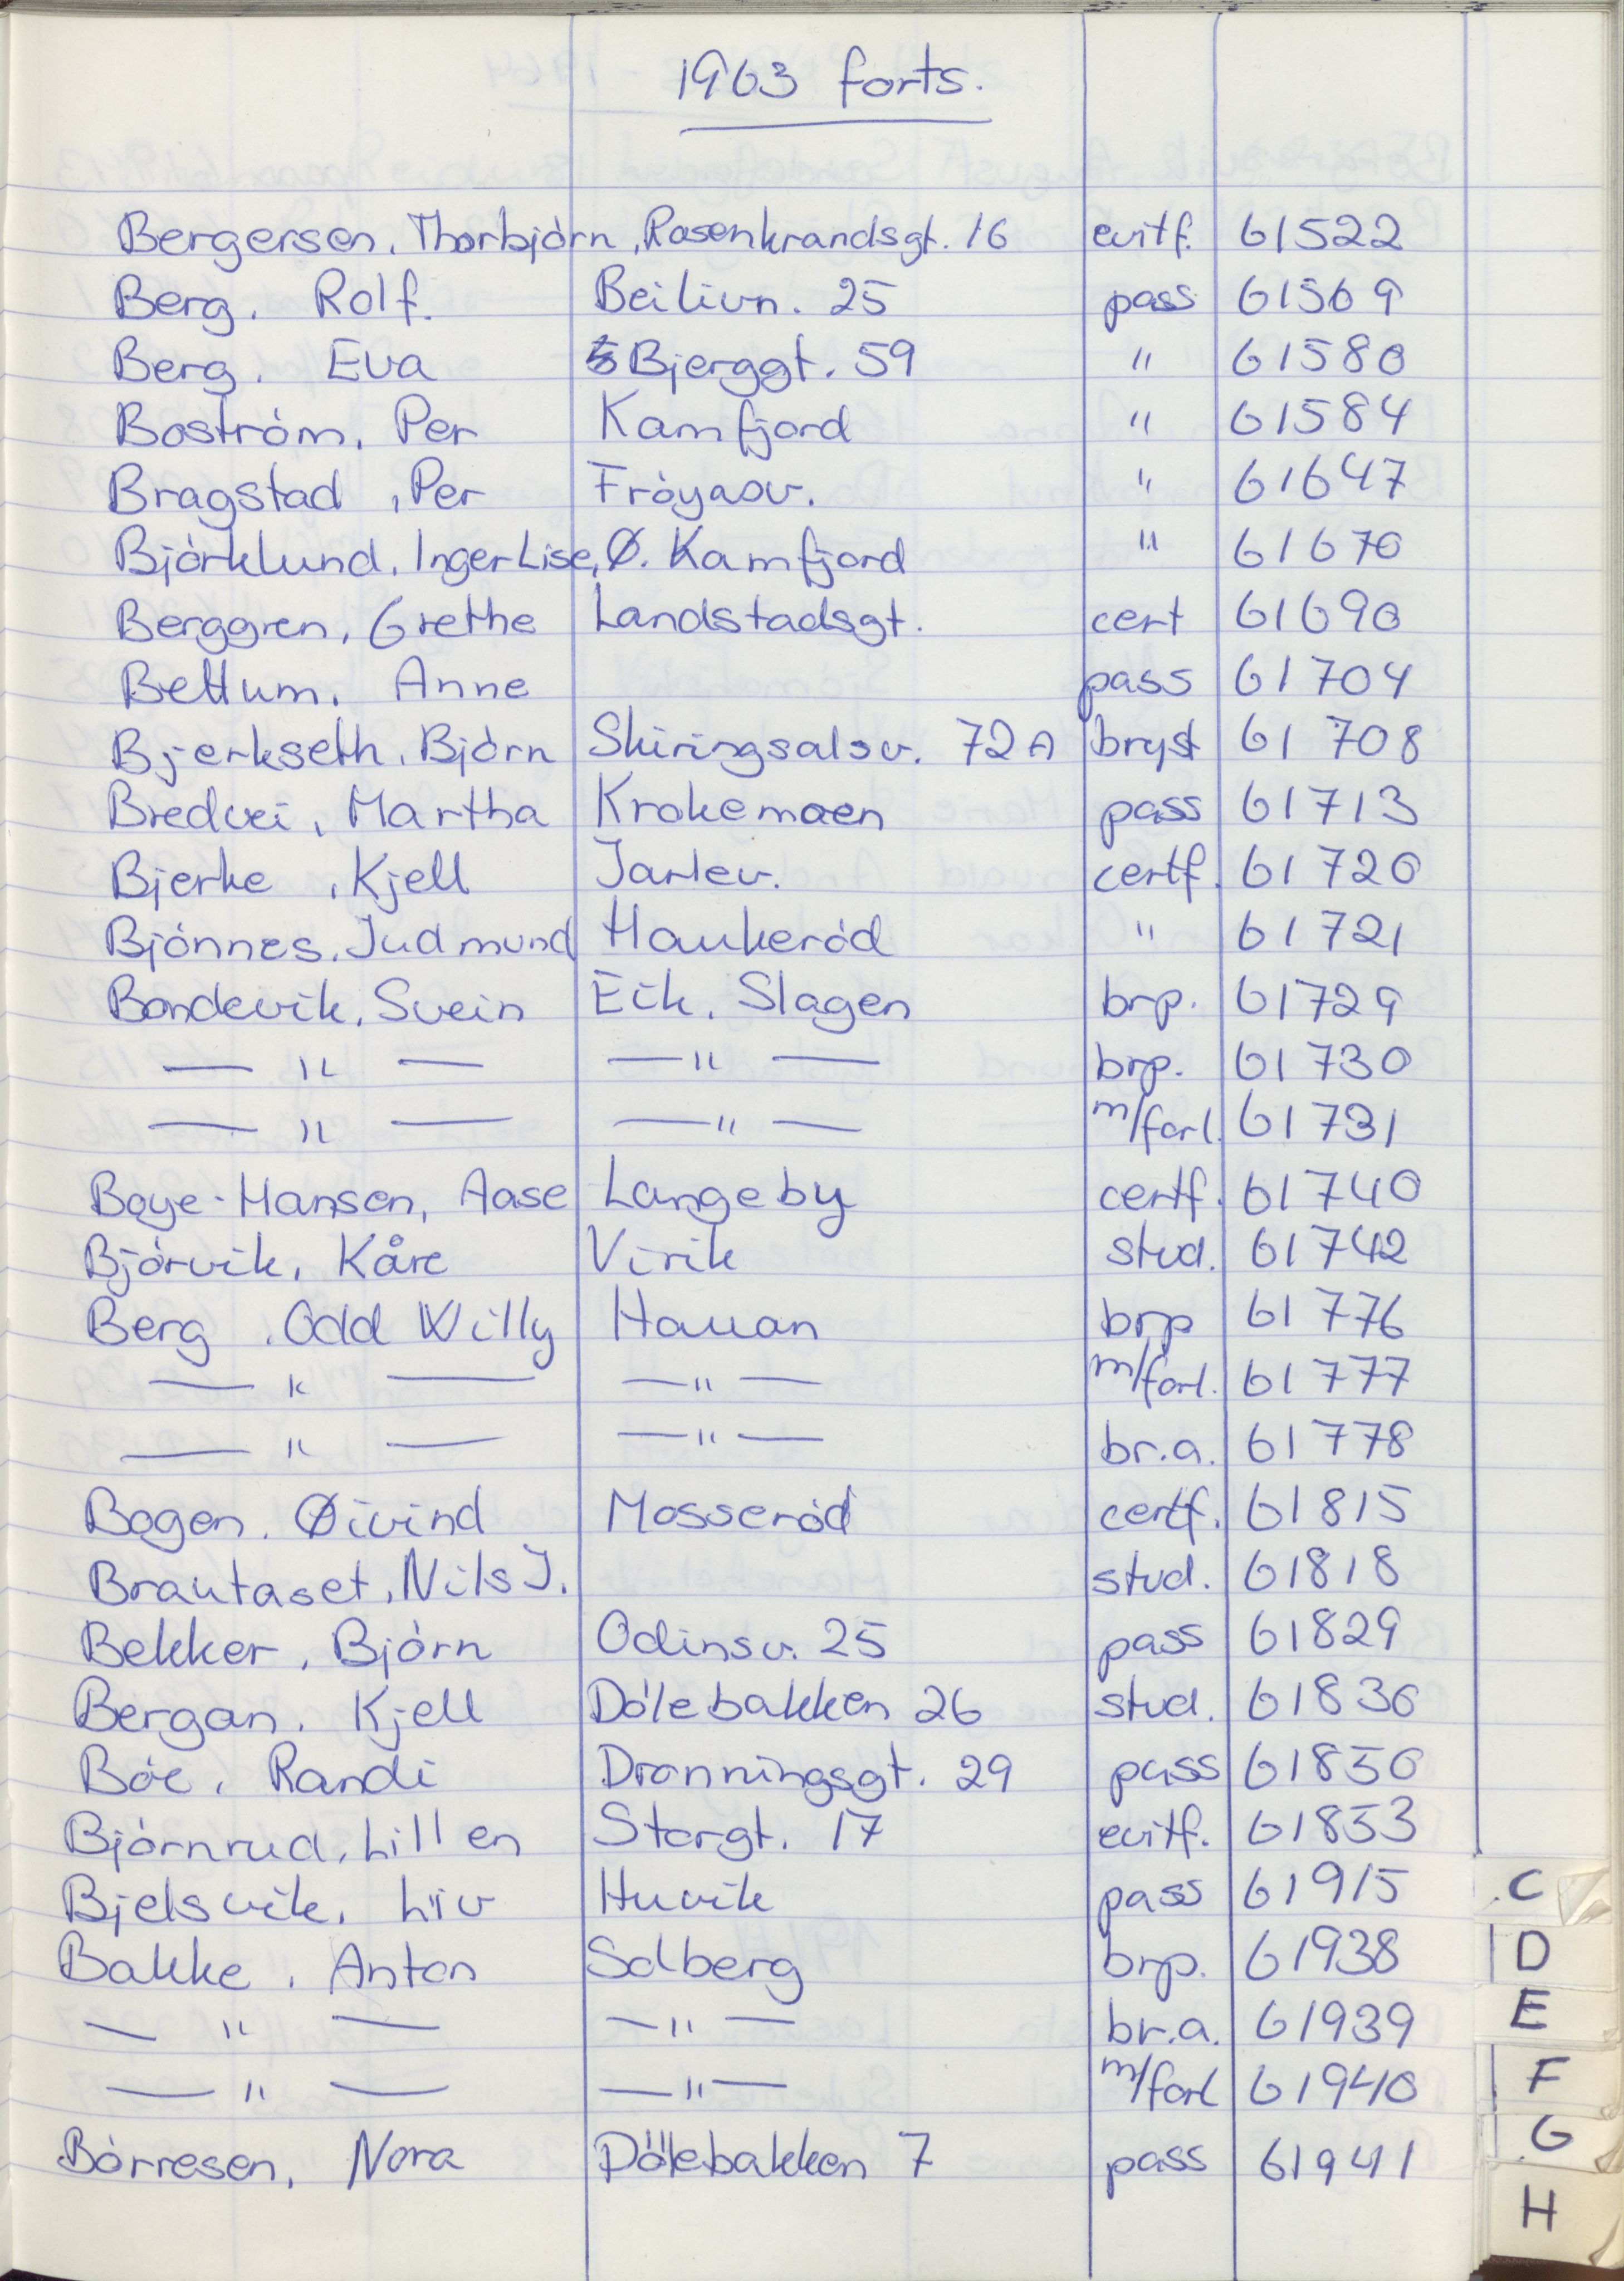 1963 forts.
Bergersen, Thorbjórn, Rosenkrandsgt. 16 evitf. 61522
Berg, Rolf. Beilivn. 25 pass 61569
Berg, Eva Bjerggt. 59 " 61580
Boström, Per Kamfjord " 61584
Bragstad, Per Fróyasv. " 61647
Björklund, Inger Lise, Ø. Kamfjord " 61670
Berggren, Grethe Landstadsgt. cert 61690
Bettum, Anne pass 61704
Bjerkseth, Bjórn Skiringsalsv. 72A bryst 61708
Bredvei, Martha Krokemoen pass 61713
Bjerke, Kjell Jarlev. certf. 61720
Bjónnes, Judmund Haukeród " 61721
Bondevik, Svein Eik, Slagen brp. 61729
— " — — " — brp. 61730
— " — — " — m/forl. 61731
Boye-Hansen, Aase Langeby certf. 61740
Bjórvik, Kåre Virik stud. 61742
Berg, Odd Willy Hauan brp 61776
— " — — " — m/forl. 61777
— " — — " — br.a. 61778
Bogen, Øivind Mosseród certf. 61815
Brautaset, Nils J. stud. 61818
Bekker, Bjórn Odinsv. 25 pass 61829
Bergan, Kjell Dólebakken 26 stud. 61836
Bóe, Randi Dronningsgt. 29 pass 61850
Bjórnrud, Lillen Storgt. 17 evitf. 61853
Bjelsvik, Liv Huvik pass 61915
Bakke, Anton Solberg brp. 61938
— " — — " — br.a. 61939
— " — — " — m/forl 61940
Bórresen, Nora Dölebakken 7 pass 61941
C
D
E
F
G
H